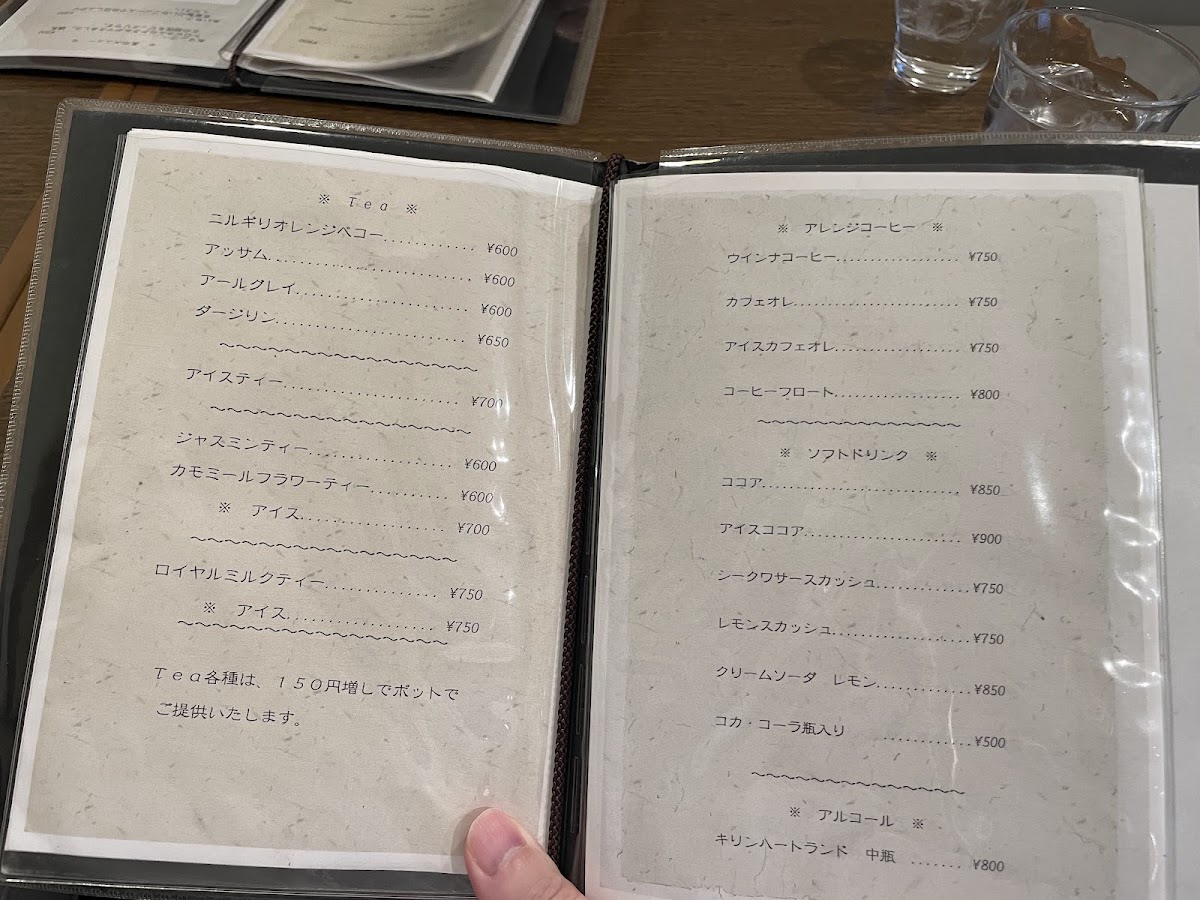 ※ Tea ※
ニルギリオレンジペコー............ ¥600
アッサム.......................... ¥600
アールグレイ...................... ¥600
ダージリン........................ ¥650
～～～～～～～～～～～～～～～～
アイスティー...................... ¥700
～～～～～～～～～～～～～～～～
ジャスミンティー.................. ¥600
カモミールフラワーティー.......... ¥600
※ アイス.................. ¥700
～～～～～～～～～～～～～～～～
ロイヤルミルクティー.............. ¥750
※ アイス.................. ¥750
～～～～～～～～～～～～～～～～
Tea各種は、150円増しでポットで
ご提供いたします。
※ アレンジコーヒー ※
ウインナコーヒー.................. ¥750
カフェオレ........................ ¥750
アイスカフェオレ.................. ¥750
コーヒーフロート.................. ¥800
～～～～～～～～～～～～～～
※ ソフトドリンク ※
ココア............................ ¥850
アイスココア...................... ¥900
シークワサースカッシュ............ ¥750
レモンスカッシュ.................. ¥750
クリームソーダ レモン............ ¥850
コカ・コーラ瓶入り ............ ¥500
～～～～～～～～～～～～～～
※ アルコール ※
キリンハートランド 中瓶 ....... ¥800